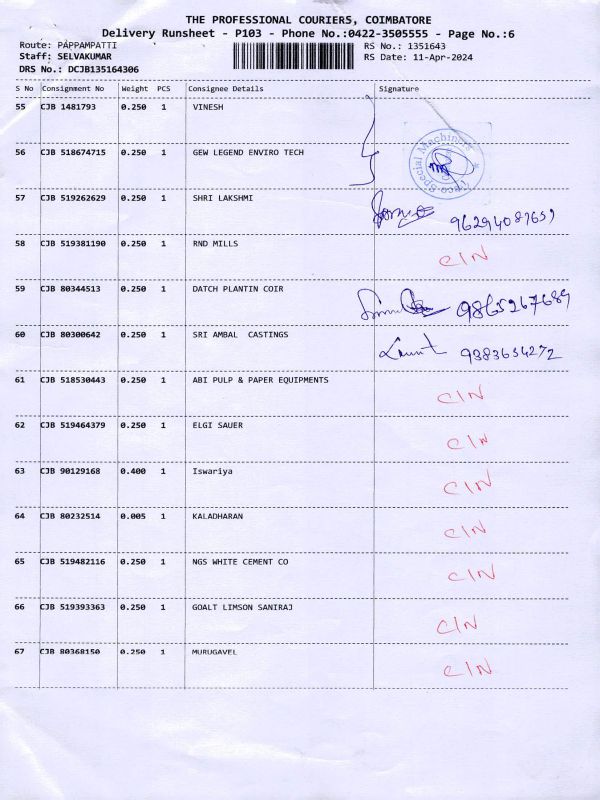 THE PROFESSIONAL COURIERS, COIMBATORE
Delivery Runsheet - P103 - Phone No.:0422-3505555 - Page No.:6
Route: PAPPAMPATTI RS No.: 1351643
Staff: SELVAKUMAR RS Date: 11-Apr-2024
DRS No.: DCJB135164306
S No Consignment No Weight PCS Consignee Details Signature
55 CJB 1481793 0.250 1 VINESH
56 CJB 518674715 0.250 1 GEW LEGEND ENVIRO TECH
Special Machines
57 CJB 519262629 0.250 1 SHRI LAKSHMI
58 CJB 519381190 0.250 1 RND MILLS CIN
59 CJB 80344513 0.250 1 DATCH PLANTIN COIR 9865267689
60 CJB 80300642 0.250 1 SRI AMBAL CASTINGS 9383634272
61 CJB 518530443 0.250 1 ABI PULP & PAPER EQUIPMENTS CIN
62 CJB 519464379 0.250 1 ELGI SAUER CIN
63 CJB 90129168 0.400 1 Iswariya CIN
64 CJB 80232514 0.005 1 KALADHARAN CIN
65 CJB 519482116 0.250 1 NGS WHITE CEMENT CO CIN
66 CJB 519393363 0.250 1 GOALT LIMSON SANIRAJ CIN
67 CJB 80368150 0.250 1 MURUGAVEL CIN